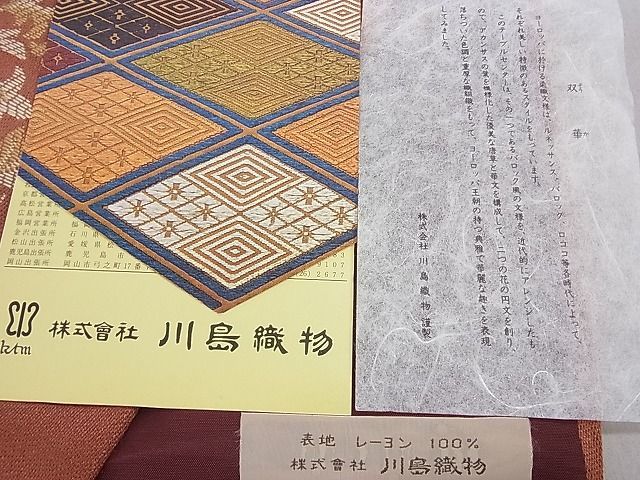 双華
すか
ヨーロッパに於ける染織文様は、ルネッサンス、バロック、ロココ等各時代によって、
それぞれ美しい特徴のあるスタイルをもっています。
このテーブルセンターは、その一つであるバロック風の文様を、近代的にアレンジしたも
ので、アカンサスの葉を模様化した優美な唐草と華文を構成して、二つの花の円文を創り、
落ちついた色調と重厚な織組織をもって、ヨーロッパ王朝の持つ典雅で華麗な趣きを表現
してみました。
株式会社 川島織物 謹製
高松営業所
広島営業所
福岡営業所 福
金沢出張所 石川県
松山出張所 愛媛県松
鹿児島出張所 鹿児島市
岡山出張所 岡山市弓之町17番
9107
(26)2677
ktm
株式會社 川島織物
表地 レーヨン 100%
株式會社 川島織物